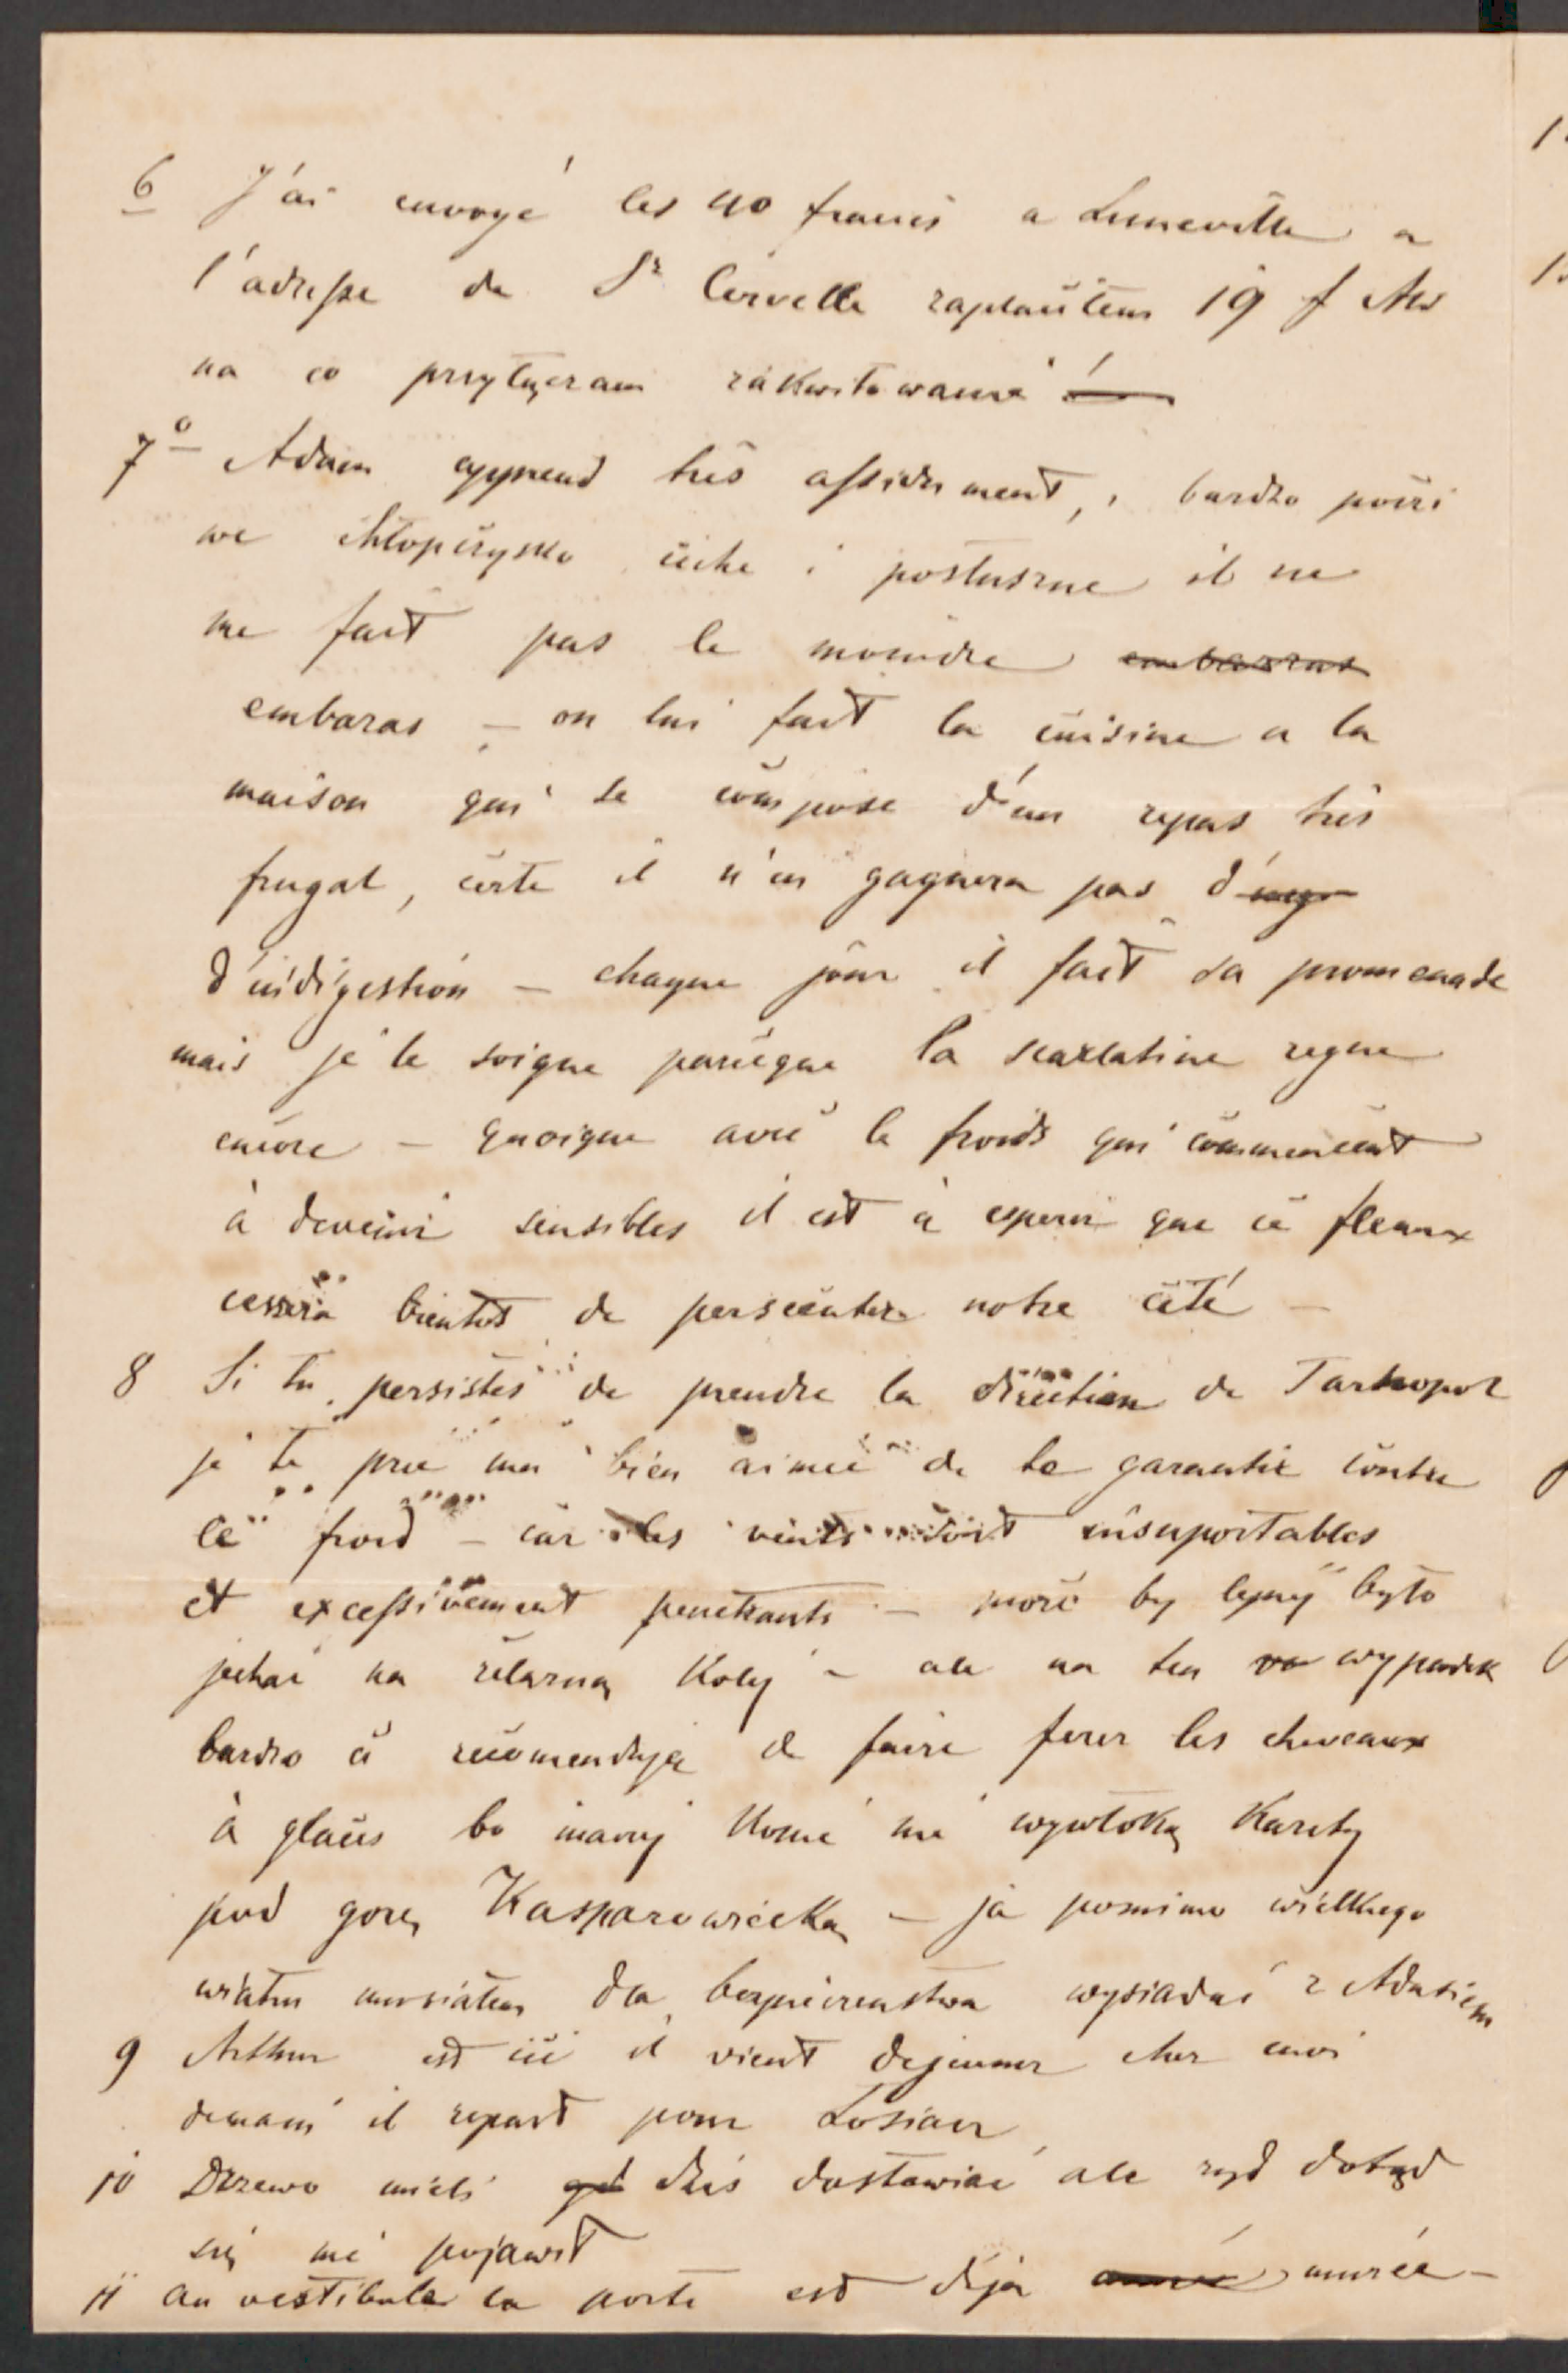 6 J'ai envoyé les 40 francs a Luneville a
l'adresse de Sr Cervelle zaplaciłem 19 f
na co przytącram zakwitowanie
7o Adam apprend très assidument, i bardzo poczci
we chłopczysko ciche i posłuszne il ne
me fait pas le moindre embarras
embaras – on lui fait la cuisine a la
maison qui se compose d'un repas très
frugal, certe il n'en gagnera pas d'
d'indigestion – chaque jour il fait sa promenade
mais je le soigne parceque la scarlatine regne
encore – quoique avec le froids qui commencent
à devenir sensibles il est à esperer que ce fleaux
cessera bientot de persecuter notre cité –
8 Si tu persistes de prendre la direction de Tarnopol
je te prie ma bien aimée de te garantir contre
le froid – car les vents sont insuportables
et excessivement penetrants – może by lepiej było
jechać na żelazną kolej – ale na ten wypadek
bardzo ci recomenduję de faire ferer les cheveaux
à glaces bo inaczej konie nie wywloką karety
pod gorę Kasparowiecką – ja pomimo wielkiego
wiatru musiałem dla bezpieczenstwa wysiadać z Adasiem
9 Arthur est ici il vient dejeuner chez moi
demain il repart pour Losiacz
10 Drzewo mieli dziś dostawiać ale żyd dotąd
się nie pojawił
11 au vestibule la porte est déja murée –